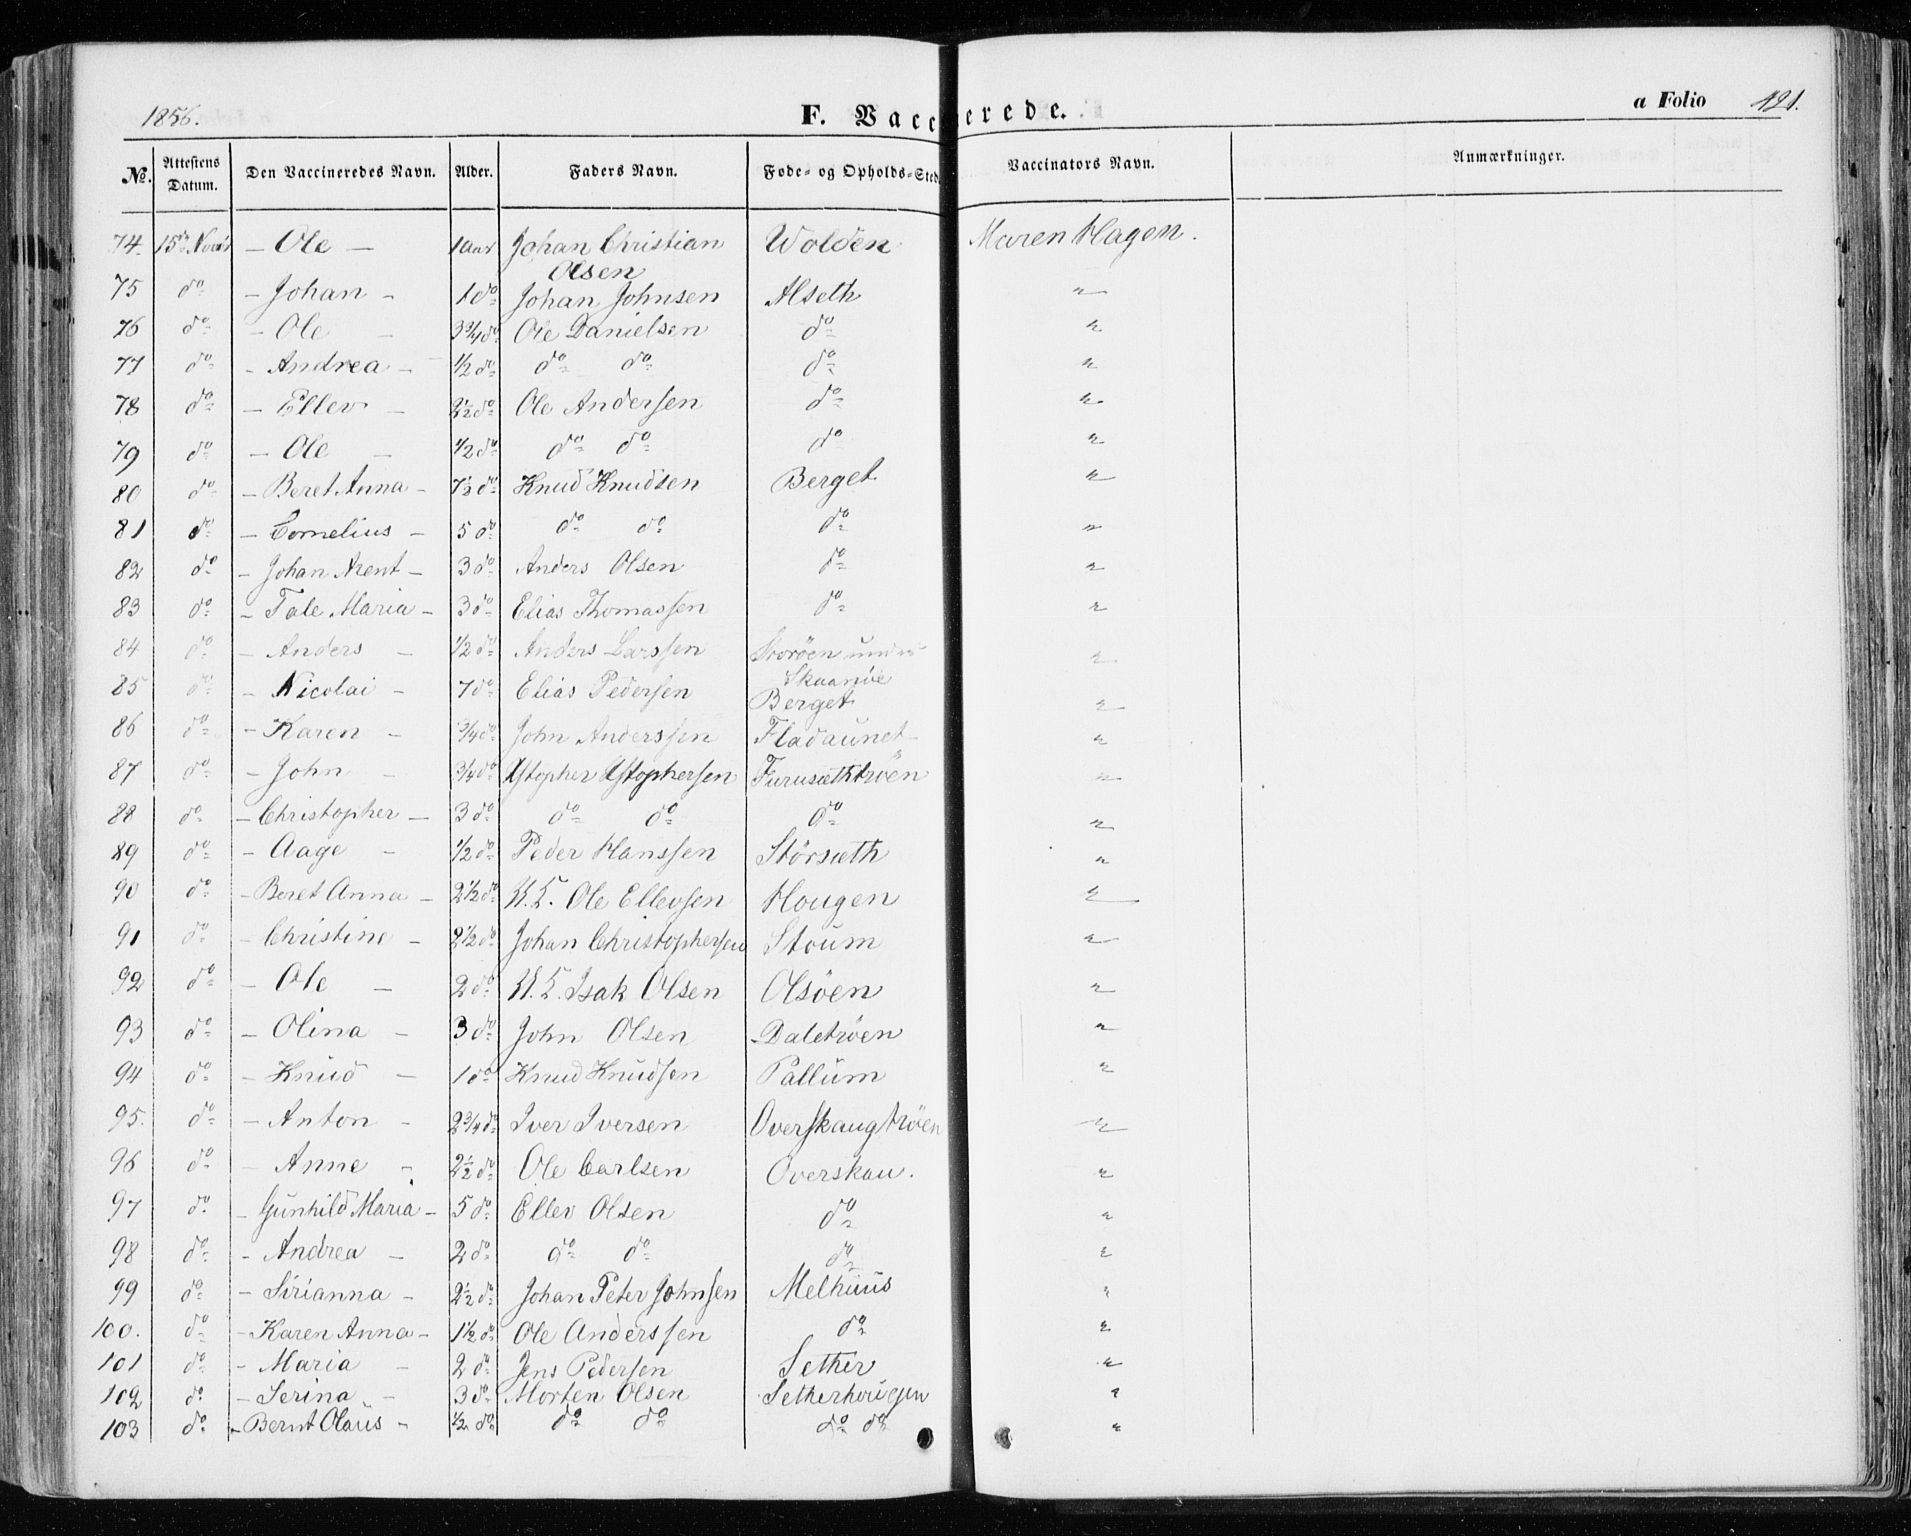 1856.
F. Vaccinerede.
a Folio 421.
No. Attestens Datum. Den Vaccineredes Navn. Alder. Faders Navn. Føde- og Opholds-Sted. Vaccinators Navn. Anmærkninger.
74. 15de Novbr - Ole - 1 Aar Johan Christian Olsen Wolden Maren Hagen.
75 do - Johan - 1 do Johan Johnsen Alseth "
76 do - Ole - 3 3/4 do Ole Danielsen do "
77 do - Andrea - 1/2 do do do do "
78 do - Ellev - 2 1/2 do Ole Andersen do "
79 do - Ole - 1/2 do do do do "
80 do - Beret Anna - 7 1/2 do Knud Knudsen Berget "
81 do - Cornelius - 5 do do do do "
82 do - Johan Arent - 3 do Anders Olsen do "
83 do - Tale Maria - 3 do Elias Thomassen do "
84 do - Anders - 1/2 do Anders Larssen Storöen under "
85 do - Nicolai - 7 do Elias Pedersen Berget "
86 do - Karen - 3/4 do John Anderssen Fladaunet "
87 do - John - 3/4 do Xstopher Xstophersen Furusæthtröen "
88 do - Christopher - 3 do do do do "
89 do - Aage - 1/2 do Peder Hanssen Störsæth "
90 do - Beret Anna - 2 1/2 do U.E. Ole Ellevsen Hougen "
91 do - Christine - 2 1/2 do Johan Christophersen Stoum "
92 do - Ole - 2 do U.E. Isak Olsen Olsöen "
93 do - Olina - 3 do John Olsen Daletröen "
94 do - Knud - 1 do Knud Knudsen Pallum "
95. do - Anton - 2 3/4 do Iver Iversen Overskaugtröen "
96 do - Anne - 2 1/2 do Ole Carlsen Overskau. "
97 do - Gunhild Maria - 5 do Ellev Olsen do "
98 do - Andrea - 2 do do do do "
99 do - Sirianna - 2 1/2 do Johan Peter Johnsen Melhuus "
100. do - Karen Anna - 1 1/2 do Ole Anderssen do "
101 do - Maria - 2 do Jens Pedersen Sether "
102 do - Serina - 3 do Morten Olsen Setherhougen "
103 do - Bernt Olaus - 1/2 do do do do do "